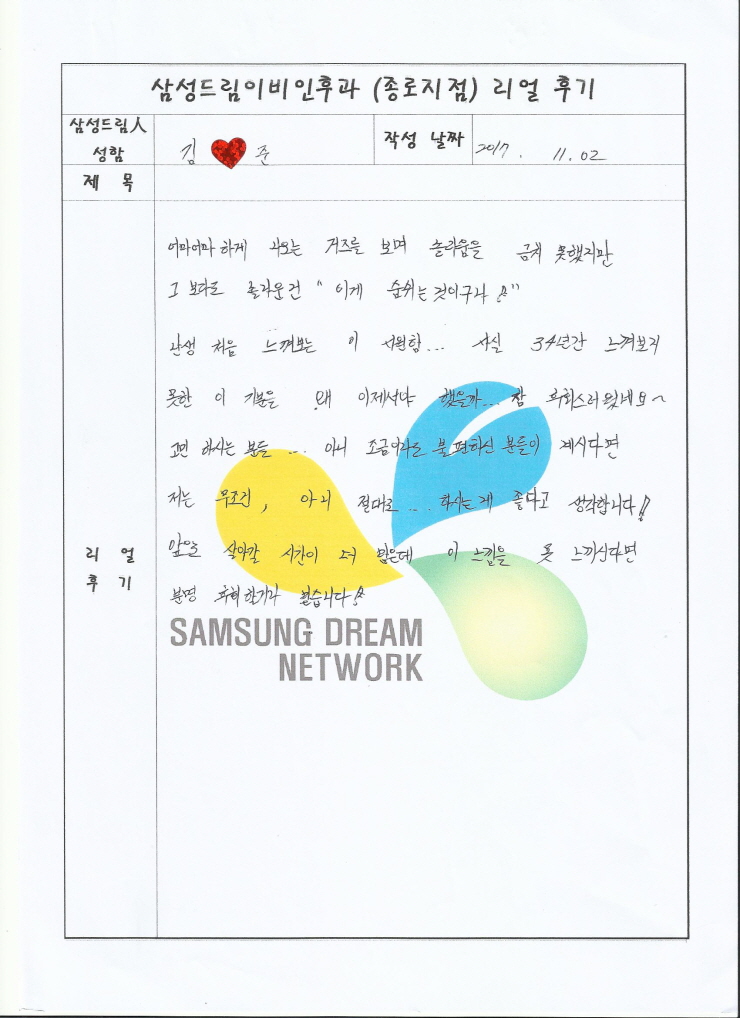 삼성드림이비인후과 (종로지점) 리얼 후기
삼성드림人
성함
김 준
작성 날짜
2017. 11. 02
제 목
어마어마 하게 나오는 거즈를 보며 놀라움을 금치 못했지만
그 보다도 놀라운건 "이게 숨쉬는것이구나!"
난생 처음 느껴보는 이 시원함... 사실 34년간 느껴보지
못한 이 기분을 왜 이제서야 했을까... 참 후회스러웠네요~
고민 하시는 분들 ... 아니 조금이라도 불편하신 분들이 계시다면
저는 무조건, 아니 절대로 .... 하시는게 좋다고 생각합니다!
앞으로 살아갈 시간이 더 많은데 이 느낌을 못 느끼신다면
분명 후회할거라 믿습니다!
리 얼
후 기
SAMSUNG DREAM
NETWORK